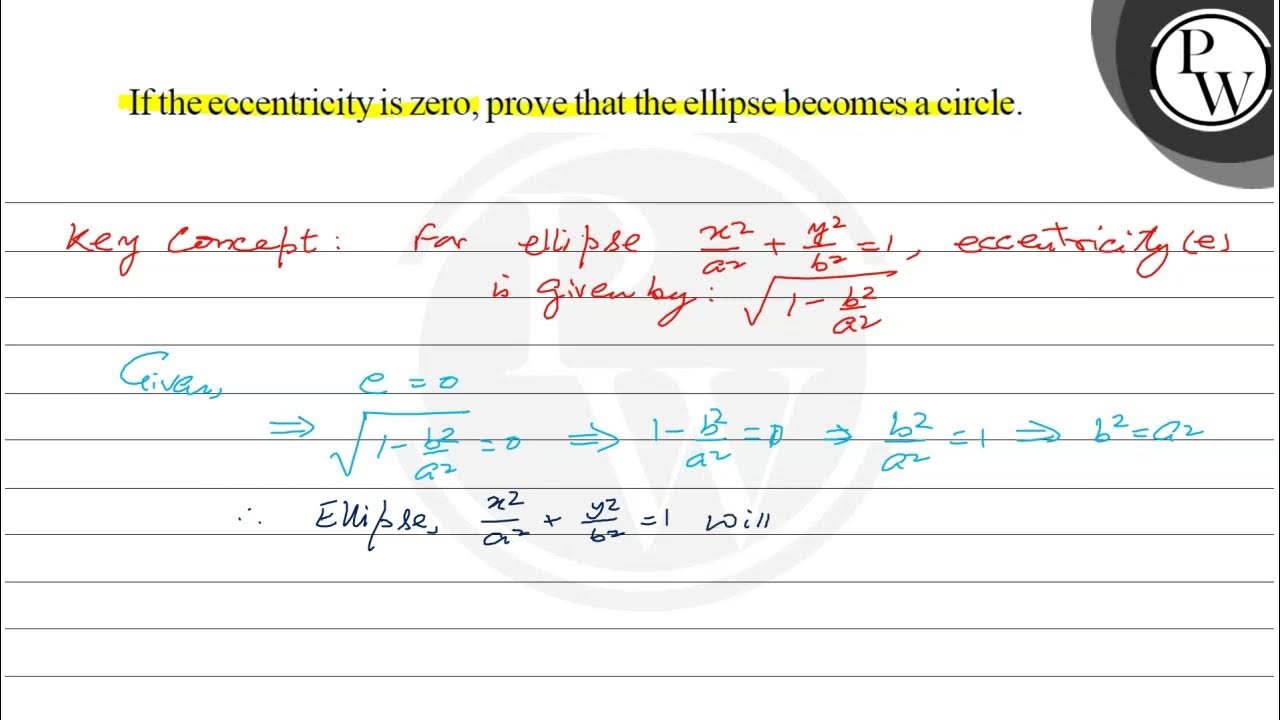 P
W
If the eccentricity is zero, prove that the ellipse becomes a circle.
Key Concept: For ellipse x²/a² + y²/b² = 1, eccentricity (e)
is given by: √(1 - b²/a²)
Given, e = 0
⇒ √(1 - b²/a²) = 0 ⇒ 1 - b²/a² = 0 ⇒ b²/a² = 1 ⇒ b² = a²
∴ Ellipse, x²/a² + y²/b² = 1 will